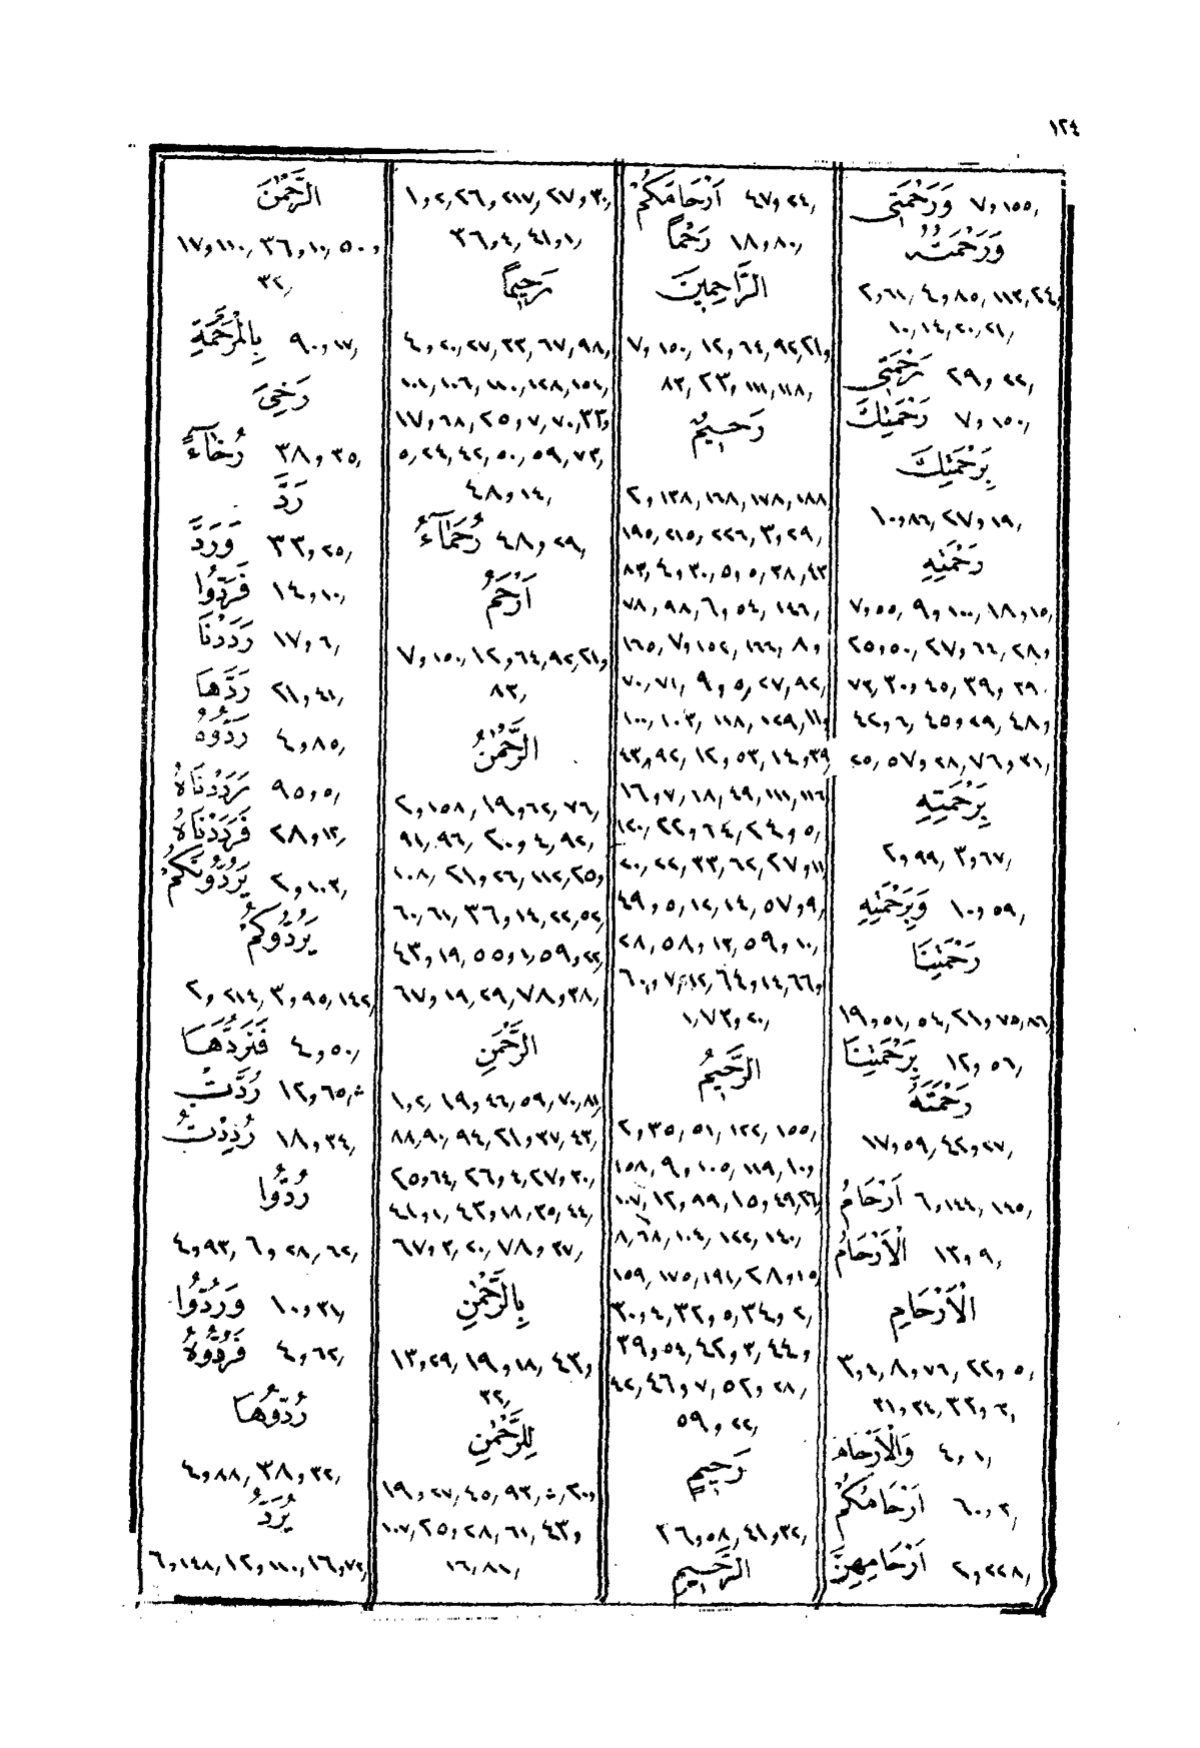 ١٢٤
وَرَحْمَتِى ٧و١٥٥,
وَرَحْمَتُهُ
٢و٦٤, ٤و٨٣, ١١٣, ٢٤و
١٠, ١٤, ٢٠, ٢١,
رَحْمَتِى ٢٩و٢٣,
رَحْمَتِكَ ٧و١٥٠,
بِرَحْمَتِكَ
١٠و٨٦, ٢٧و١٩,
رَحْمَتِهِ
٧و٥٥, ٩و١٠٠, ١٨و١٥,
٢٥و٥٠, ٢٧و٦٤, ٢٨و
٧٣, ٣٠و٤٥, ٣٩و٢٩,
٤٢و٦, ٤٥و٢٩, ٤٨و
٢٥, ٥٧و٢٨, ٧٦و٣١,
بِرَحْمَتِهِ
٢و٩٩, ٣و٦٧,
وَبِرَحْمَتِهِ ١٠و٥٩,
رَحْمَتِنَا
١٩و٥١, ٥٤, ٢١و٧٥, ٨٦,
بِرَحْمَتِنَا ١٢و٥٦,
رَحْمَتَهُ
١٧و٥٩, ٤٢و٢٧,
أَرْحَامُ ٦و١٤٤, ١٤٥,
الْأَرْحَامُ ١٣و٩,
الْأَرْحَامِ
٣و٤, ٨و٧٦, ٢٢و٥,
٣١و٣٤, ٣٣و٦,
وَالْأَرْحَامَ ٤و١,
أَرْحَامُكُمْ ٦٠و٣,
أَرْحَامِهِنَّ ٢و٢٢٨,
أَرْحَامَكُمْ ٤٧و٢٤,
رُحْمًا ١٨و٨٠,
الرَّاحِمِينَ
٧و١٥٠, ١٢و٦٤, ٩٢, ٢١و
٨٣, ٢٣و١١١, ١١٨,
رَحِيمٌ
٢و١٣٨, ١٦٨, ١٧٨, ١٨٨
١٩٥, ٢١٥, ٢٢٦, ٣و٢٩,
٨٣, ٤و٣٠, ٥و٥, ٣٨, ٤٣
٧٨, ٩٨, ٦و٥٤, ١٤٦,
١٦٥, ٧و١٥٢, ١٦٦, ٨و
٧٠, ٧١, ٩و٥, ٢٧, ٩٢,
١٠٠, ١٠٣, ١١٨, ١٢٩, ١١و
٤٣, ٩٢, ١٢و٥٣, ١٤و٣٩,
١٦و٧, ١٨, ٤٩, ١١١, ١١٦
١٢٠, ٢٢و٦٤, ٢٤و٥,
٢٠, ٢٢, ٣٣, ٦٢, ٢٧و١١,
٤٩و٥, ١٢, ١٤, ٥٧و٩,
٢٨, ٥٨و١٣, ٥٩و١٠,
٦٠و٧, ١٢, ٦٤و١٤, ٦٦و
١, ٧٣و٢٠,
الرَّحِيمُ
٢و٣٥, ٥١, ١٢٢, ١٥٥,
١٥٨, ٩و١٠٥, ١١٩, ١٠و
١٠٧, ١٢و٩٩, ١٥و٤٩, ٢٦و
٨, ٦٨, ١٠٤, ١٢٢, ١٤٠,
١٥٩, ١٧٥, ١٩١, ٢٨و١٥,
٣٠و٤, ٣٢و٥, ٣٤و٢,
٣٩و٥٤, ٤٢و٣, ٤٤و
٤٢, ٤٦و٧, ٥٢و٢٨,
٥٩و٢٢,
رَحِيمٍ
٣٦و٥٨, ٤١و٣٢,
الرَّحِيمِ
١و٢, ٢٦و٢١٧, ٢٧و٣٠,
٣٦و٤, ٤١و١,
رَحِيمًا
٤و٢٠, ٢٧, ٣٣, ٦٧, ٩٨,
١٠١, ١٠٦, ١١٠, ١٢٨, ١٥١,
١٧و٦٨, ٢٥و٧, ٧٠, ٣٣و
٥, ٢٤, ٤٢, ٥٠, ٥٩, ٧٣,
٤٨و١٤,
رُحَمَآءُ ٤٨و٢٩,
أَرْحَمُ
٧و١٥٠, ١٢و٦٤, ٩٢, ٢١و
٨٣,
الرَّحْمٰنُ
٢و١٥٨, ١٩و٦٢, ٧٦,
٩١, ٩٦, ٢٠و٤, ٩٢,
١٠٨, ٢١و٢٦, ١١٢, ٢٥و
٦٠, ٦١, ٣٦و١٤, ٢٢, ٥٢,
٤٣و١٩, ٥٥و١, ٥٩و٢٢,
٦٧و١٩, ٢٩, ٧٨و٣٨,
الرَّحْمٰنِ
١و٢, ١٩و٤٦, ٥٩, ٧٠, ٨١,
٨٨, ٩٠, ٩٤, ٢١و٣٧, ٤٣,
٢٥و٦٤, ٢٦و٤, ٢٧و٣٠,
٤١و١, ٤٣و١٨, ٣٥, ٤٤,
٦٧و٣, ٢٠, ٧٨و٣٧,
بِالرَّحْمٰنِ
١٣و٢٩, ١٩و١٨, ٤٣و
٣٢,
لِلرَّحْمٰنِ
١٩و٢٧, ٤٥, ٩٣, ٢٠و
١٠٧, ٢٥و٢٨, ٦١, ٤٣و
١٦, ٨١,
الرَّحْمٰنَ
١٧و١١٠, ٣٦و١٠, ٥٠و
٣٢,
بِالْمَرْحَمَةِ ٩٠و١٧,
رَخِىَ
رُخَآءً ٣٨و٣٥,
رَدَّ
وَرَدَّ ٣٣و٢٥,
فَرَدُّوا ١٤و١٠,
رَدَدْنَا ١٧و٦,
رَدَّهَا ٢١و٤١,
رَدُّوهُ ٤و٨٥,
رَدَدْنَاهُ ٩٥و٥,
فَرَدَدْنَاهُ ٢٨و١٢,
يَرُدُّونَكُمْ ٢و١٠٣,
يَرُدُّوكُمْ
٢و٢١٤, ٣و٩٥, ١٤٢,
فَنَرُدَّهَا ٤و٥٠,
رُدَّتْ ١٢و٦٥,
رُدِدْتُ ١٨و٣٤,
رُدُّوا
٤و٩٣, ٦و٢٨, ٦٢,
وَرُدُّوا ١٠و٣١,
فَرُدُّوهُ ٤و٦٢,
رُدُّوهَا
٤و٨٨, ٣٨و٣٢,
يُرَدُّ
٦و١٤٨, ١٢و١١٠, ١٦و٧٢,